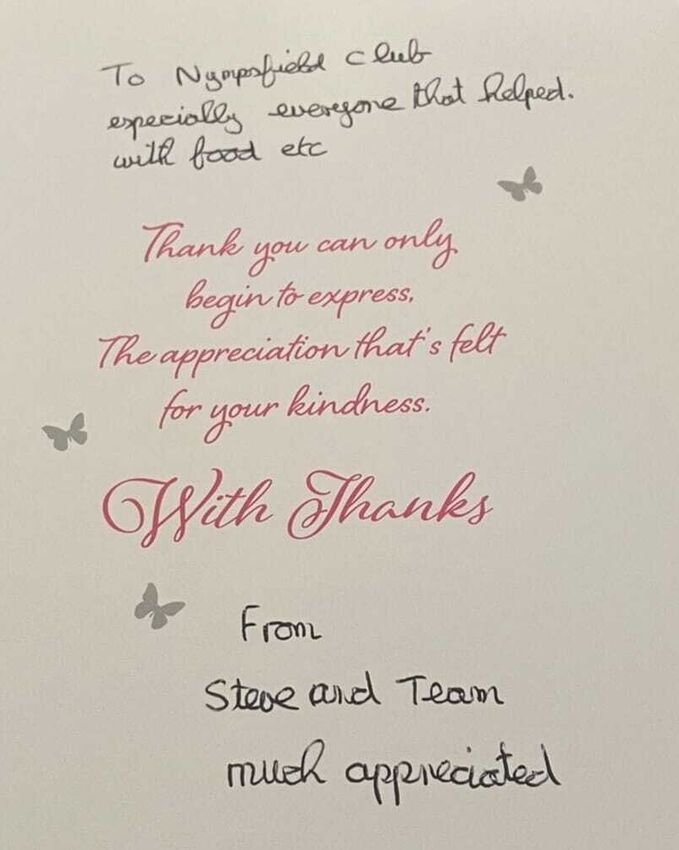 To Nympsfield Club
especially everyone that helped.
with food etc
Thank you can only
begin to express,
The appreciation that's felt
for your kindness.
With Thanks
From
Steve and Team
much appreciated